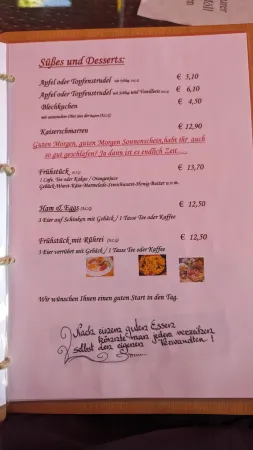 Süßes und Desserts:
Apfel oder Topfenstrudel mit Schlag € 5,10
Apfel oder Topfenstrudel mit Schlag und Vanilleis € 6,10
Blechkuchen € 4,50
Kaiserschmarren € 12,90
Guten Morgen, guten Morgen Sonnenschein,habt ihr auch
so gut geschlafen? Ja dann ist es endlich Zeit.....
Frühstück € 13,70
1 Cafe, Tee oder Kakao / Orangenjuice
Gebäck-Wurst-Käse-Marmelade-Honig-Butter u.v.m.
Ham & Eggs € 12,50
3 Eier auf Schinken mit Gebäck / 1 Tasse Tee oder Kaffee
Frühstück mit Rührei € 12,50
3 Eier verrührt mit Gebäck / 1 Tasse Tee oder Kaffee
Wir wünschen Ihnen einen guten Start in den Tag.
Nach einem guten Essen
könnte man jedem verzeihen
selbst den eigenen Verwandten !